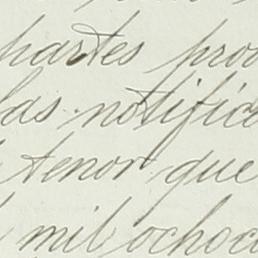 partes prod
las notifica
tenor que
mil ochoc